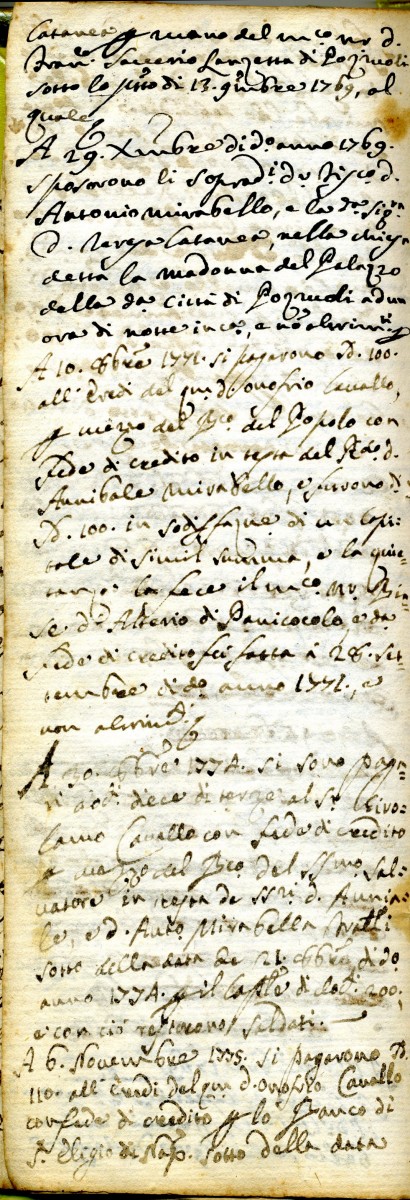 Catanea p mano del m.co nr d.
Fran.co Saverio Lanzetta di Pozzuoli
sotto lo p.mo di 13. 9mbre 1769, al
quale
A 29. Xmbre di d.o anno 1769.
sposorono li sopradi d.
Antonio Mirabello, e la d.a sig.ra
D. Teresa Catanea, nella chiesa
detta la Madonna del Palazzo
della d.a Città di Pozzuoli ad un
ora di notte in ca, e nō altrim.ti
A 10. 8bre 1771. si pagarono D. 100.
all' Eredi del qm d. Onofrio Cavallo,
p mezzo del Bco. del Popolo con
fede di credito in testa del d.
Annibale Mirabello, e furono
D. 100. in sodisfazne di un capi:
tale di simil summa, e la quie:
tanza la fece il m.co Nr. Bia:
se d' Alterio di Panicocolo, e d.a
fede di credito fu fatta a 28. set:
tembre di d.o anno 1771., e
non altrim.ti
A 30. 8bre 1774. si sono paga:
ti doc.i diece di terze al S.r Giro:
lamo Cavallo con fede di credito
p mezzo del Bco del SSmo Sal:
vatore in testa de SS.ri d. Anniba:
le, e d. Ant.o Mirabella fratelli
sotto della data de 21. 8bre di d.o
anno 1774. p il cap.le di doc.i 200:
e con ciò restorono saldati:
A 6. Novembre 1775. si pagarono D.
110. all' Eredi del qm d. Onofrio Cavallo
con fede di credito p lo Banco di
S.t Eligio di Nap. sotto della data